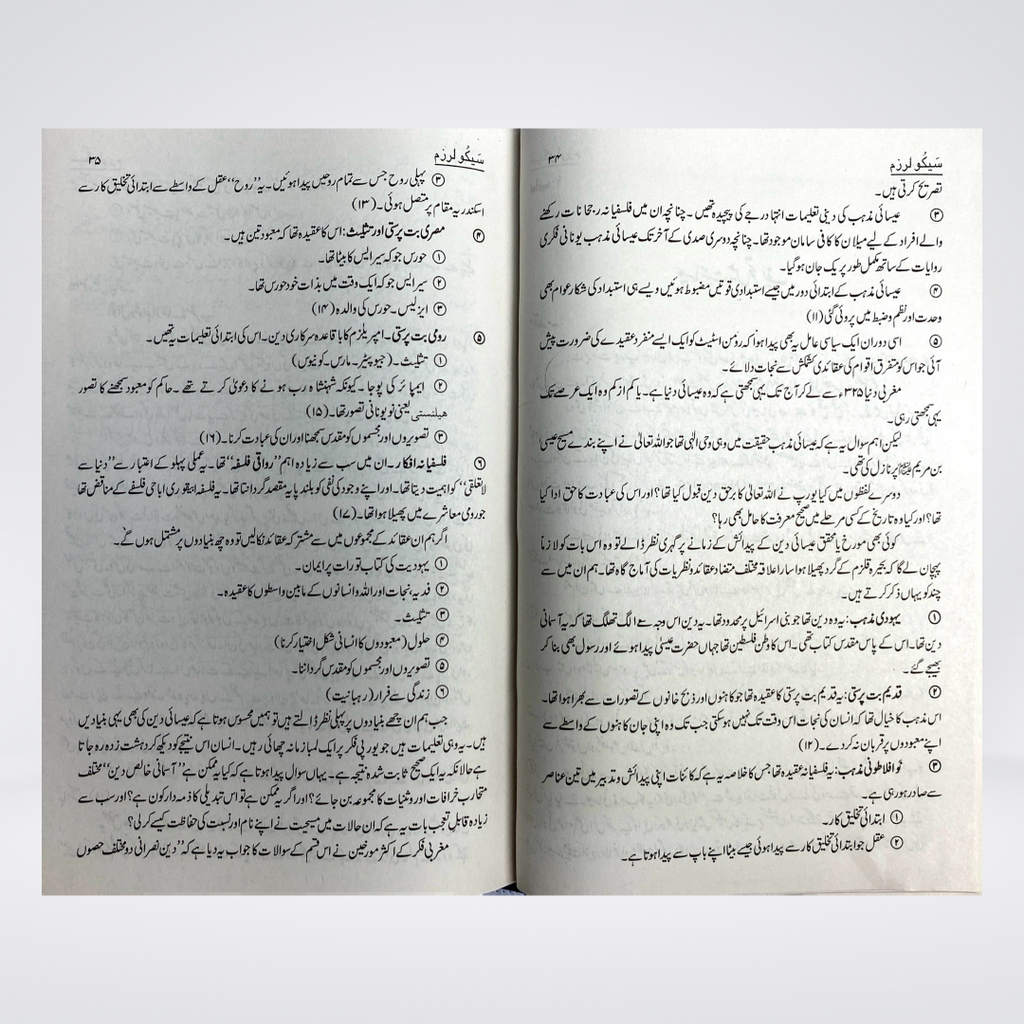 سیکولرزم ۳۴
تصریح کرتی ہیں۔
③ عیسائی مذہب کی دینی تعلیمات انتہا درجے کی پیچیدہ تھیں۔ چنانچہ ان میں فلسفیانہ رجحانات رکھنے
والے افراد کے لیے میلان کا کافی سامان موجود تھا۔ چنانچہ دوسری صدی کے آخر تک عیسائی مذہب یونانی فکری
روایات کے ساتھ مکمل طور پر یک جان ہو گیا۔
④ عیسائی مذہب کے ابتدائی دور میں جیسے استبدادی قوتیں مضبوط ہوئیں ویسے ہی استبداد کی شکار عوام بھی
وحدت اور نظم و ضبط میں پروئی گئی (۱۱)
⑤ اسی دوران ایک سیاسی عامل یہ بھی پیدا ہوا کہ رومن اسٹیٹ کو ایک ایسے منفرد عقیدے کی ضرورت پیش
آئی جو اس کو متفرق اقوام کی عقائدی کشمکش سے نجات دلائے۔
مغربی دنیا ۳۲۵ء سے لے کر آج تک یہی سمجھتی ہے کہ وہ عیسائی دنیا ہے۔ یا کم از کم وہ ایک عرصے تک
یہی سمجھتی رہی۔
لیکن اہم سوال یہ ہے کہ عیسائی مذہب حقیقت میں وہی وحی الٰہی تھا جو اللہ تعالیٰ نے اپنے بندے مسیح عیسیٰ
بن مریم ﷺ پر نازل کی تھی۔
دوسرے لفظوں میں کیا یورپ نے اللہ تعالیٰ کا برحق دین قبول کیا تھا؟ اور اس کی عبادت کا حق ادا کیا
تھا؟ اور کیا وہ تاریخ کے کسی مرحلے میں صحیح معرفت کا حامل بھی رہا؟
کوئی بھی مورخ یا محقق عیسائی دین کے پیدائش کے زمانے پر گہری نظر ڈالے تو وہ اس بات کو لازماً
پہچان لے گا کہ بحیرہ قلزم کے گرد پھیلا ہوا سارا علاقہ مختلف متضاد عقائد و نظریات کی آماج گاہ تھا۔ ہم ان میں سے
چند کو یہاں ذکر کرتے ہیں۔
① یہودی مذہب: یہ وہ دین تھا جو بنی اسرائیل پر محدود تھا۔ یہ دین اس وجہ سے الگ تھلگ تھا کہ یہ آسمانی
دین تھا۔ اس کے پاس مقدس کتاب تھی۔ اس کا وطن فلسطین تھا جہاں حضرت عیسیٰ پیدا ہوئے اور رسول بھی بنا کر
بھیجے گئے۔
② قدیم بت پرستی: یہ قدیم بت پرستی کا عقیدہ تھا جو کاہنوں اور ذبح خانوں کے تصورات سے بھرا ہوا تھا۔
اس مذہب کا خیال تھا کہ انسان کی نجات اس وقت تک نہیں ہو سکتی جب تک وہ اپنی جان کاہنوں کے واسطے سے
اپنے معبودوں پر قربان نہ کر دے۔ (۱۲)
③ نو افلاطونی مذہب: یہ فلسفیانہ عقیدہ تھا جس کا خلاصہ یہ ہے کہ کائنات اپنی پیدائش و تدبیر میں تین عناصر
سے صادر ہو رہی ہے۔
① ابتدائی تخلیق کار۔
② عقل جو ابتدائی تخلیق کار سے پیدا ہوئی جیسے بیٹا اپنے باپ سے پیدا ہوتا ہے۔
سیکولرزم ۳۵
③ پہلی روح جس سے تمام روحیں پیدا ہوئیں۔ یہ ”روح“ عقل کے واسطے سے ابتدائی تخلیق کار سے
اسکندریہ مقام پر متصل ہوئی۔ (۱۳)
④ مصری بت پرستی اور تثلیث: اس کا عقیدہ تھا کہ معبود تین ہیں۔
① حورس جو کہ سیراپس کا بیٹا تھا۔
② سیراپس جو کہ ایک وقت میں بذات خود حورس تھا۔
③ ایزلیس۔ حورس کی والدہ (۱۴)
⑤ رومی بت پرستی۔ امپریلزم کا باقاعدہ سرکاری دین۔ اس کی ابتدائی تعلیمات یہ تھیں۔
① تثلیث۔ (جیوپیٹر۔ مارس۔ کونیوس)
② ایمپائر کی پوجا۔ کیونکہ شہنشاہ رب ہونے کا دعویٰ کرتے تھے۔ حاکم کو معبود سمجھنے کا تصور
ھیلنستی یعنی نو یونانی تصور تھا۔ (۱۵)
③ تصویروں اور مجسموں کو مقدس سمجھنا اور ان کی عبادت کرنا۔ (۱۶)
⑥ فلسفیانہ افکار۔ ان میں سب سے زیادہ اہم ”رواقی فلسفہ“ تھا۔ یہ عملی پہلو کے اعتبار سے ”دنیا سے
لاتعلقی“ کو اہمیت دیتا تھا۔ اور اپنے وجود کی نفی کو بلند پایہ مقصد گردانتا تھا۔ یہ فلسفہ ابیقوری اباحی فلسفے کے مناقض تھا
جو رومی معاشرے میں پھیلا ہوا تھا۔ (۱۷)
اگر ہم ان عقائد کے مجموعوں میں سے مشترکہ عقائد نکالیں تو وہ چھ بنیادوں پر مشتمل ہوں گے۔
① یہودیت کی کتاب تورات پر ایمان۔
② فدیہ، نجات اور اللہ و انسانوں کے مابین واسطوں کا عقیدہ۔
③ تثلیث۔
④ حلول (معبودوں کا انسانی شکل اختیار کرنا)
⑤ تصویروں اور مجسموں کو مقدس گرداننا۔
⑥ زندگی سے فرار (رہبانیت)
جب ہم ان چھ بنیادوں پر پہلی نظر ڈالتے ہیں تو ہمیں محسوس ہوتا ہے کہ عیسائی دین کی بھی یہی بنیادیں
ہیں۔ یہ وہی تعلیمات ہیں جو یورپی فکر پر ایک لمبا زمانہ چھائی رہیں۔ انسان اس نتیجے کو دیکھ کر دہشت زدہ رہ جاتا
ہے حالانکہ یہ ایک صحیح ثابت شدہ نتیجہ ہے۔ یہاں سوال پیدا ہوتا ہے کہ کیا یہ ممکن ہے ”آسمانی خالص دین“ مختلف
متحارب خرافات اور وثنیات کا مجموعہ بن جائے؟ اور اگر یہ ممکن ہے تو اس تبدیلی کا ذمہ دار کون ہے؟ اور سب سے
زیادہ قابل تعجب بات یہ ہے کہ ان حالات میں مسیحیت نے اپنے نام اور نسبت کی حفاظت کیسے کر لی؟
مغربی فکر کے اکثر مورخین نے اس قسم کے سوالات کا جواب یہ دیا ہے کہ ”دین نصرانی دو مختلف حصوں